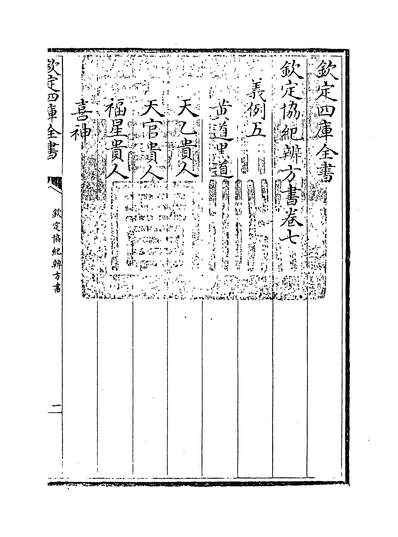 欽定四庫全書
欽定協紀辨方書卷七
義例五
黄道黑道
天乙貴人
天官貴人
福星貴人
喜神
欽定四庫全書
欽定協紀辨方書
一